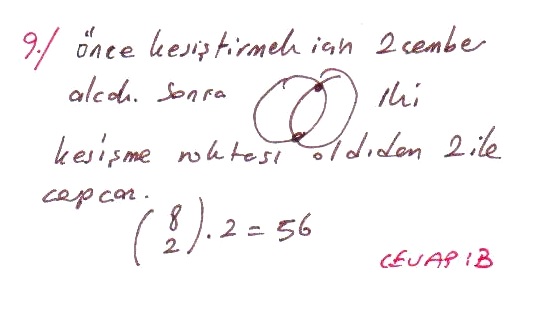 9./ önce kesiştirmek için 2 cember
alcak. Sonra İki
kesişme noktası oldıdan 2 ile
carpcaz.
(8 2) . 2 = 56
CEVAP : B